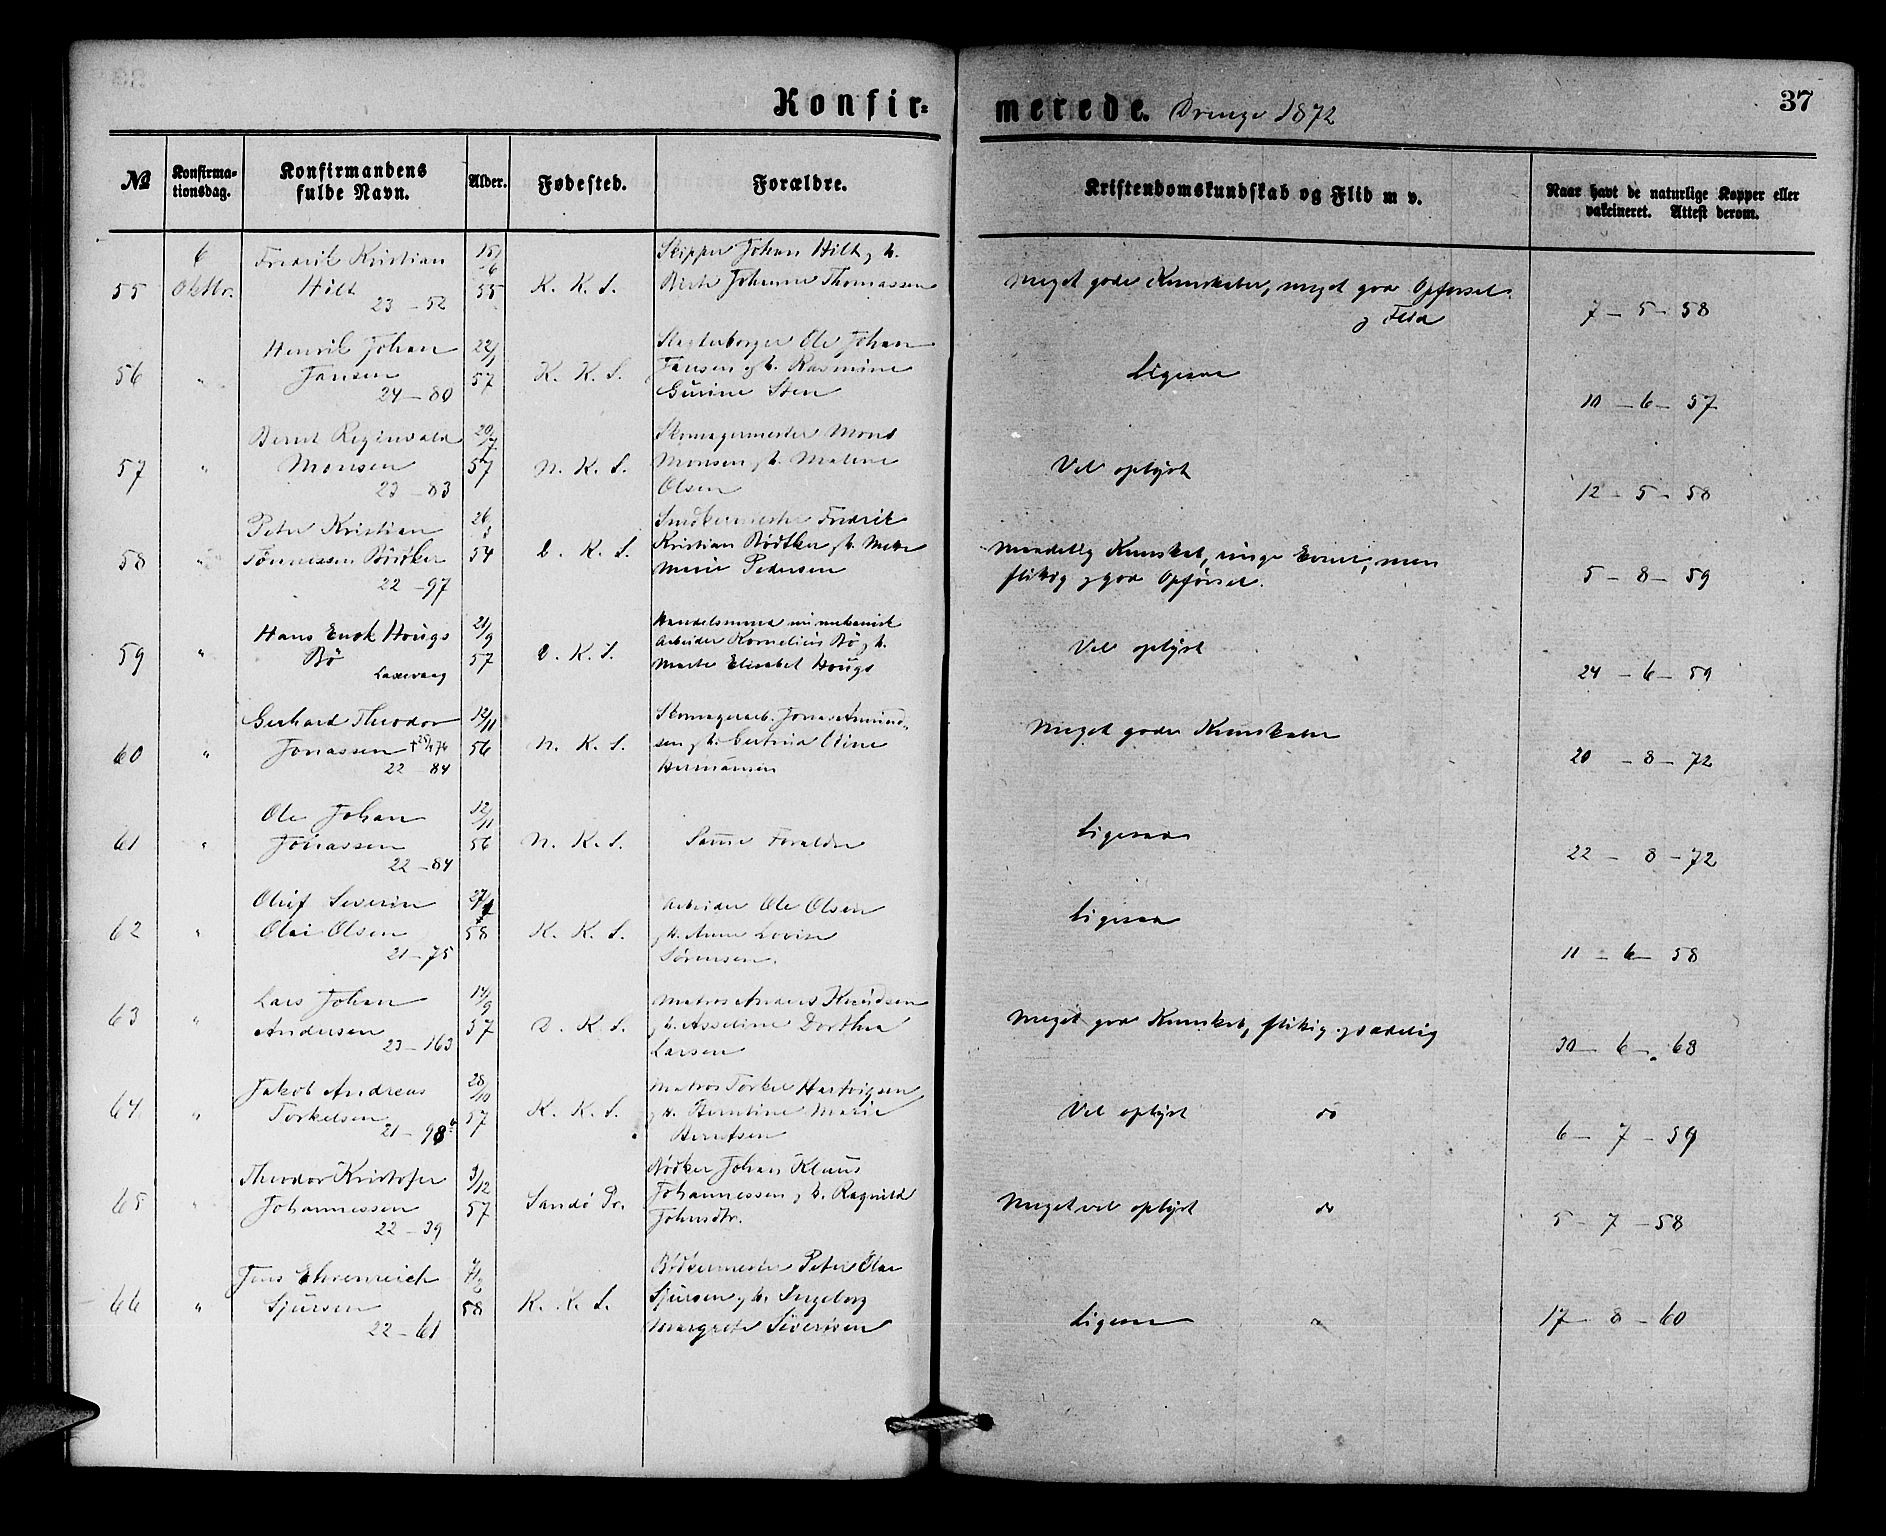 Konfir= merede. Drenge 1872 37
№ Konfirma-tionsdag. Konfirmandens fulde Navn. Alder. Fødested. Forældre. Kristendomskundskab og Flid m v. Naar havt de naturlige Kopper eller vakcineret. Attest derom.
6 Fredrik Kristian 15/6 Skipper Johan Hilt, h.
55 Oktbr. Hilt 55 K. K. S. Berte Johanne Thomassen Meget gode Kunskaber, meget god Opførsel 7-5-58
23-52 g Flid
Henrik Johan 22/1 Slagterborger Ole Johan
56 " Jansen 57 K. K. S. Jansen g h. Rasmine Ligesaa
24-80 Gurine Sten 10-6-57
Bernt Reginvald 20/7 Skomagermester Mons
57 " Monsen 57 N. K. S. Monsen g h. Malene Vel oplyst
23-83 Olsen 12-5-58
Peter Kristian 26 Snedkermester Fredrik
58 " Tønnessen Bödtker 54 D. K. S. Kristian Bödtker g h. Mette Maadelig Kunskab, ringe Evner, men
22-97 Marie Pedersen flittig g god Opførsel. 5-8-59
Hans Enok Hougs 21/9 Handelsmand nu mekanisk
59 " Bö 57 D. K. S. Arbeider Kornelius Bö g h. Vel oplyst
Laxevaag Marte Elisabet Hougs 24-6-59
Gerhard Theodor 12/11 Skomagerarb. Jonas Amund-
60 " Jonassen 56 N. K. S. sen g h. Gertrud Oline Meget gode Kunskaber
22-84 Hermansen 20-8-72
Ole Johan 12/11
61 " Jonassen 56 N. K. S. Samme Foraldre Ligesaa
22-84 22-8-72
Oluf Severin 27 Arbeider Ole Olsen
62 " Olai Olsen 58 K. K. S. g h. Anne Lovise Ligesaa
21-75 Sörensen. 11-6-58
Lars Johan 14/9 Matros Anders Knudsen
63 " Andersen 57 D. K. S. g h. Asseline Dorthea Meget god Kunskab, flittig g sædelig
23-163 Larsen 30-6-68
Jakob Andreas 28/10 Matros Torkel Hartvigsen
64. " Torkelsen 57 K. K. S. g h. Berntine Marie Vel oplyst do
21-98 Berntsen 6-7-59
Theodor Kristofer 9/12 Bödker Johan Klaus
65 " Johannessen 57 Sandö Pr. Johannessen g h. Ragnild Meget vel oplyst do
22-39 Johnsdtr. 5-7-58
Jens Ehrenreich 7/2 Bödkermester Peter Olai
66 " Sjursen 58 K. K. S. Sjursen g h. Ingeborg Ligesaa " 17-8-60
22-61 Margrete Sivertsen